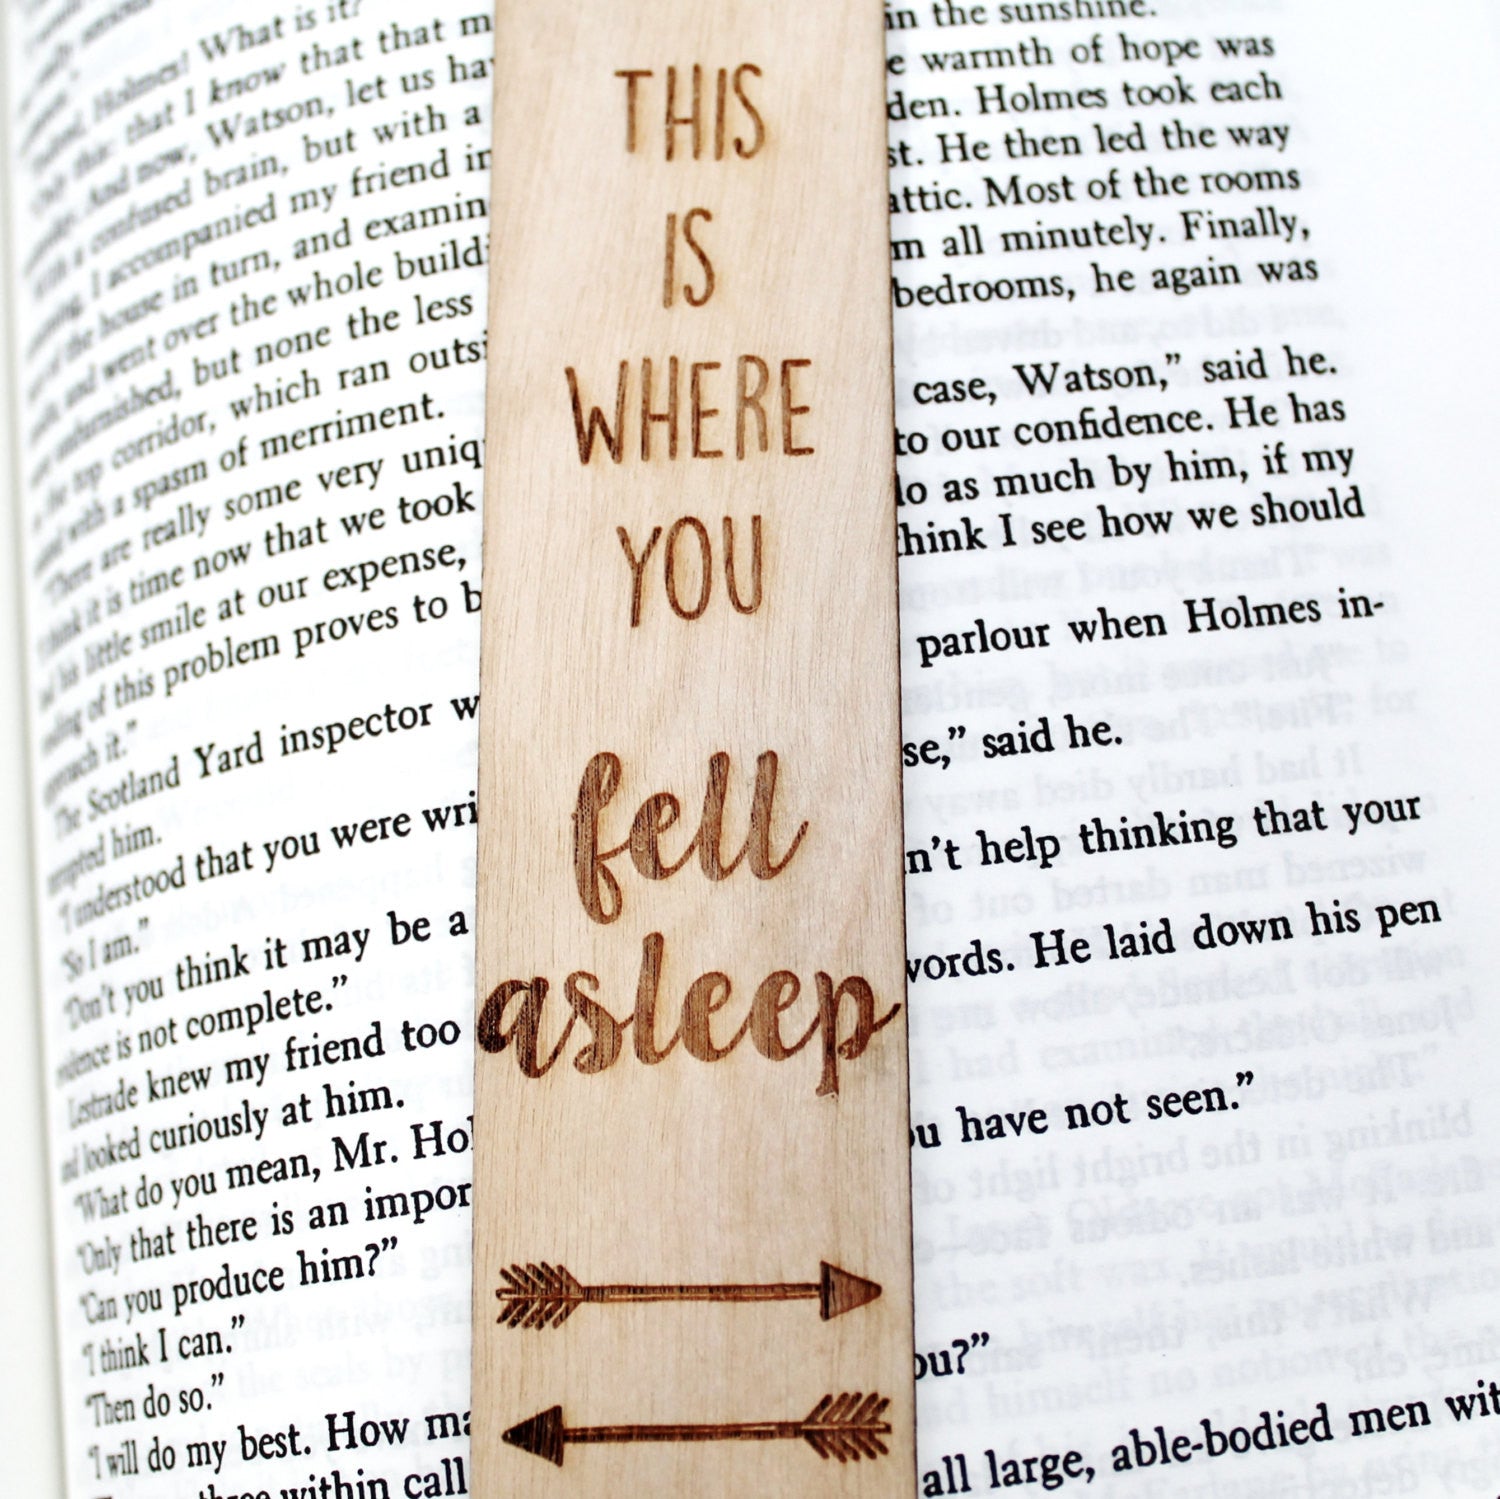 THIS
IS
WHERE
YOU
fell
asleep
Holmes! What is it?
that I know that that m
And now, Watson, let us ha
a confused brain, but with a
I accompanied my friend in
the house in turn, and examin
and went over the whole build
unfurnished, but none the less
the top corridor, which ran outsi
with a spasm of merriment.
"There are really some very uniq
think it is time now that we took
his little smile at our expense,
of this problem proves to b
it."
The Scotland Yard inspector w
him.
"I understood that you were wri
"So I am."
"Don't you think it may be a
is not complete."
Lestrade knew my friend too
looked curiously at him.
"What do you mean, Mr. Hol
"Only that there is an impor
"Can you produce him?"
"I think I can."
"Then do so."
"I will do my best. How ma
within call
in the sunshine.
e warmth of hope was
den. Holmes took each
st. He then led the way
attic. Most of the rooms
m all minutely. Finally,
bedrooms, he again was
case, Watson," said he.
to our confidence. He has
do as much by him, if my
think I see how we should
parlour when Holmes in-
se," said he.
n't help thinking that your
words. He laid down his pen
ou have not seen."
ou?"
all large, able-bodied men wit